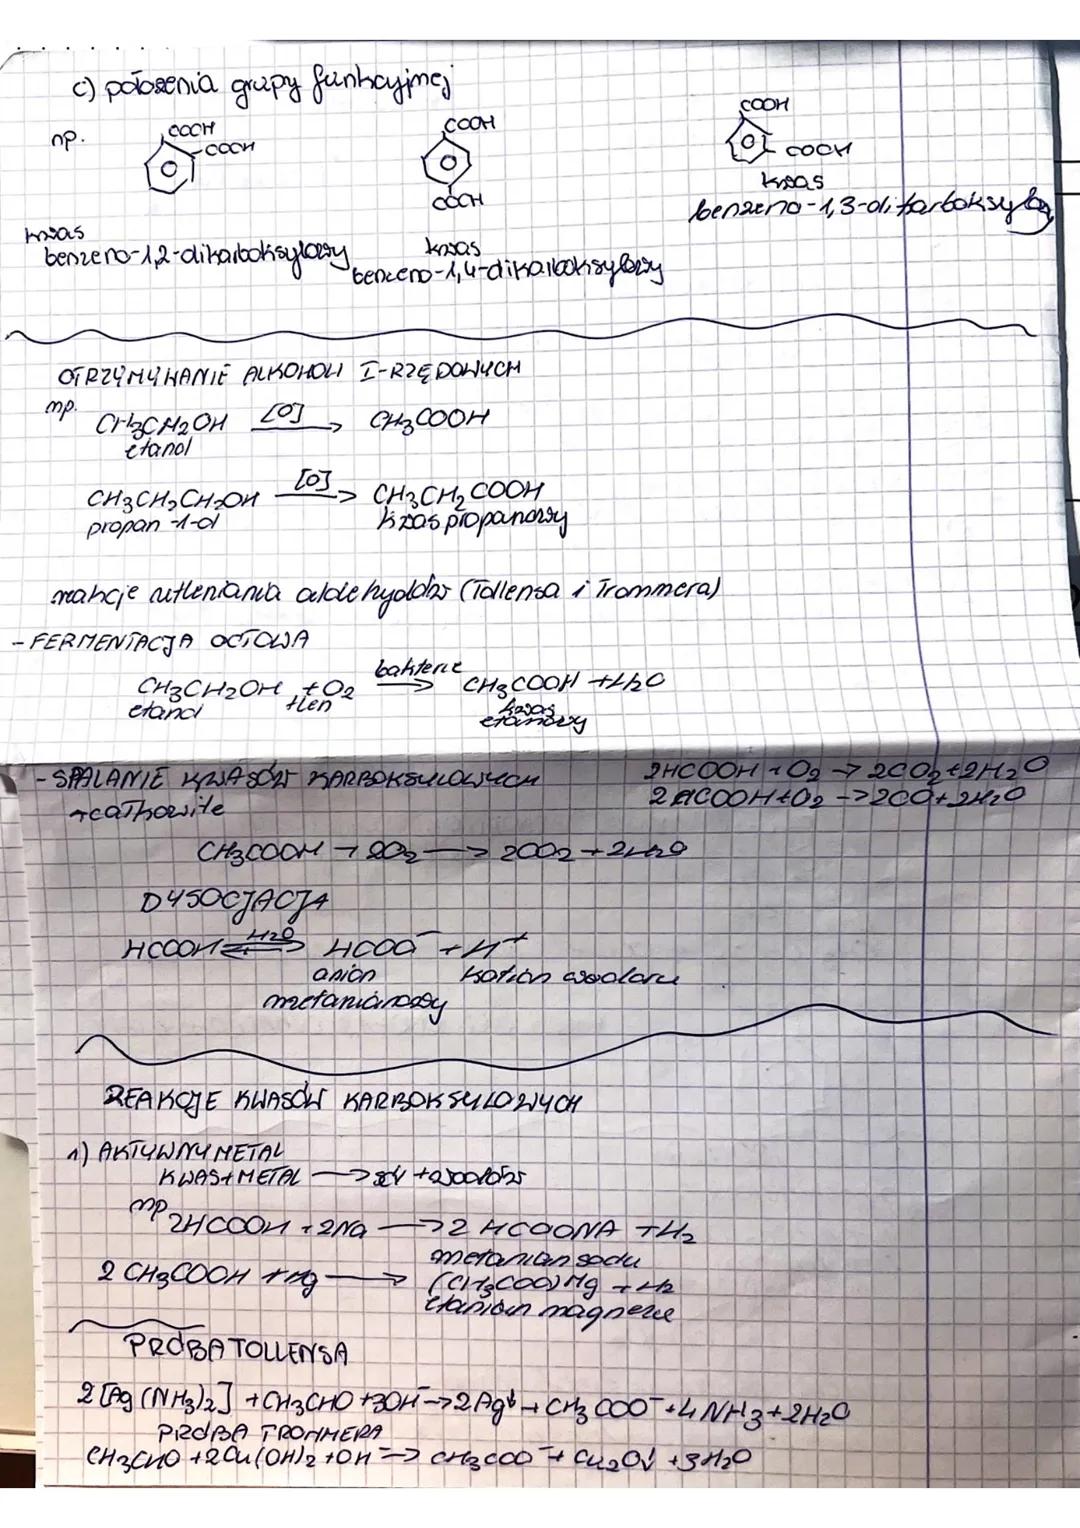 c) położenia grupy funkcyjnej
np.
COOH
COOH
COOH
COOH
COOH
COOH
kwas
benzeno-1,2-dikarboksylowy
kwas
benzeno-1,4-dikarboksylowy
kwas
benzeno-1,3-dikarboksylowy
OTRZYMYWANIE ALKOHOLI I-RZĘDOWYCH
np.
CH3CH2OH [O] → CH3COOH
etanol
CH3CH2CH2OH [O] → CH3CH2COOH
propan-1-ol kwas propanowy
reakcje utleniania aldehydów (Tollensa i Trommera)
- FERMENTACJA OCTOWA
CH3CH2OH + O2 bakterie → CH3COOH + H2O
etanol tlen kwas etanowy
- SPALANIE KWASÓW KARBOKSYLOWYCH
2HCOOH + O2 → 2CO2 + 2H2O
2HCOOH + O2 → 2CO + 2H2O
całkowite
CH3COOH + 2O2 → 2CO2 + 2H2O
DYSOCJACJA
HCOOH ⇌ H2O HCOO⁻ + H⁺
anion kation wodoru
metanianowy
REAKCJE KWASÓW KARBOKSYLOWYCH
1) AKTYWNY METAL
KWAS + METAL → sól + wodór
np. 2HCOOH + 2Na → 2 HCOONA + H2
metanian sodu
2 CH3COOH + Mg → (CH3COO)Mg + H2
etanian magnezu
PRÓBA TOLLENSA
2[Ag(NH3)2] + CH3CHO + 3OH⁻ → 2Ag↓ + CH3COO⁻ + 4NH3 + 2H2O
PRÓBA TROMMERA
CH3CHO + 2Cu(OH)2 + OH⁻ → CH3COO⁻ + Cu2O↓ + 3H2O